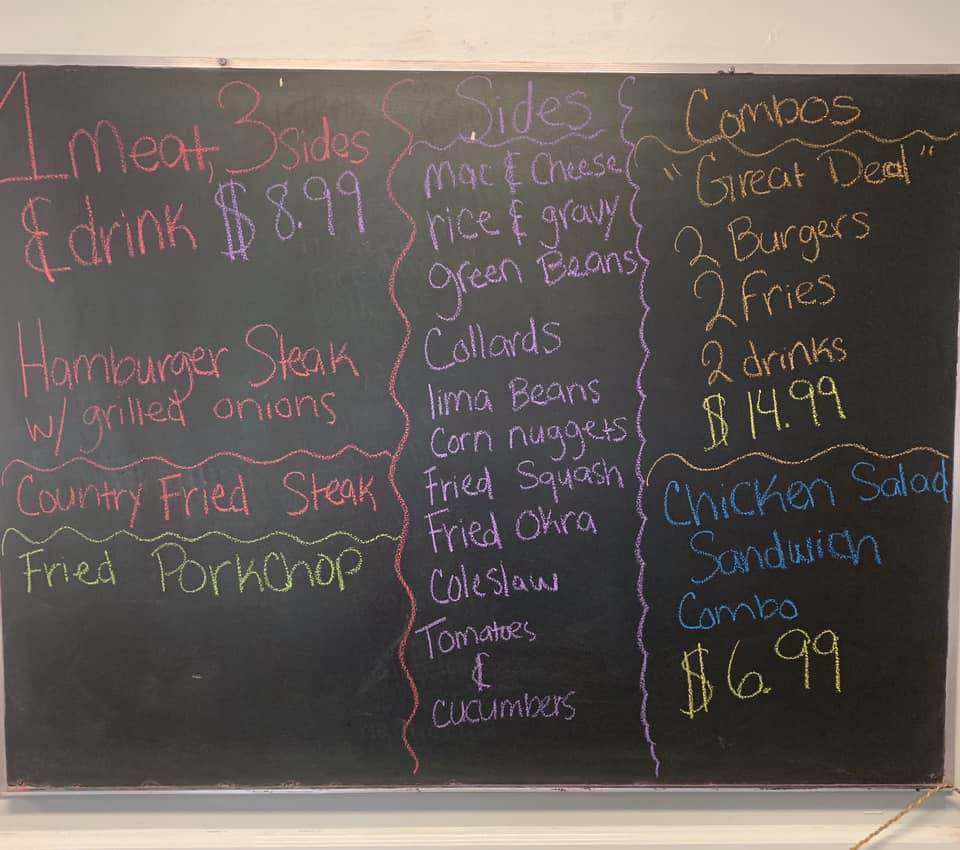 1 Meat, 3 sides
& drink $8.99
Hamburger Steak
w/ grilled onions
Country Fried Steak
Fried Porkchop
Sides
Mac & Cheese
rice & gravy
green Beans
Collards
lima Beans
Corn nuggets
Fried Squash
Fried Okra
Coleslaw
Tomatoes
&
cucumbers
Combos
"Great Deal"
2 Burgers
2 Fries
2 drinks
$14.99
Chicken Salad
Sandwich
Combo
$6.99